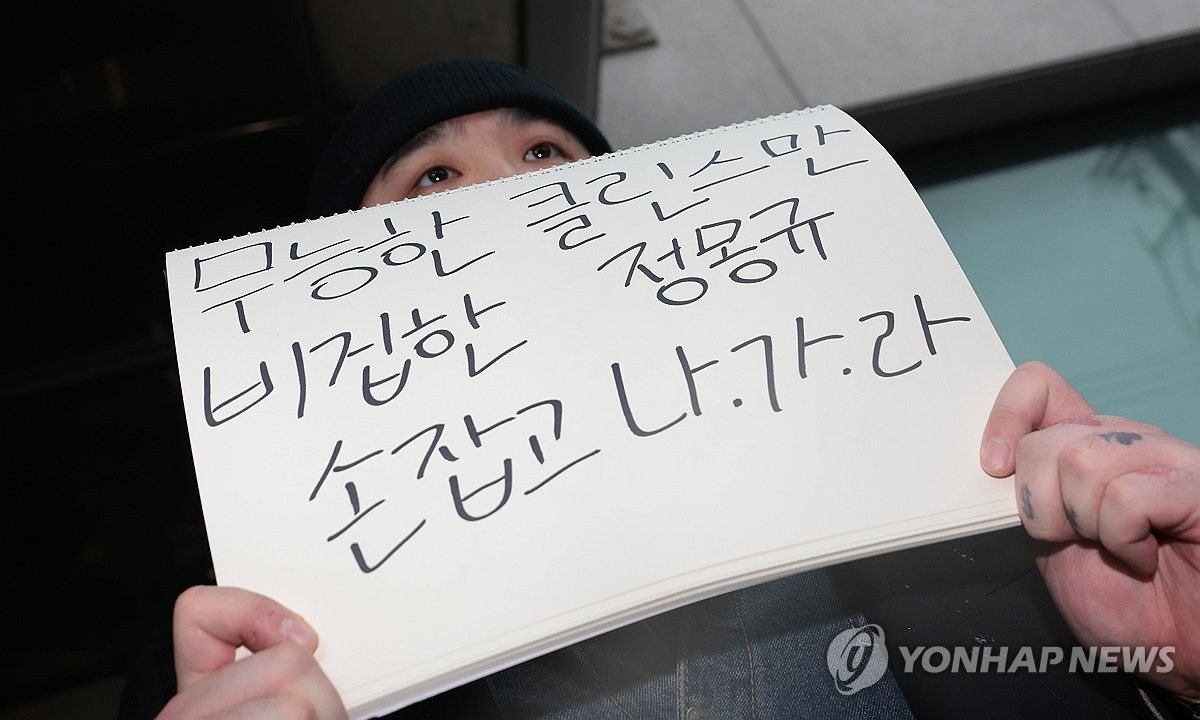 무능한 클린스만
비겁한 정몽규
손잡고 나.가.라
YONHAP NEWS